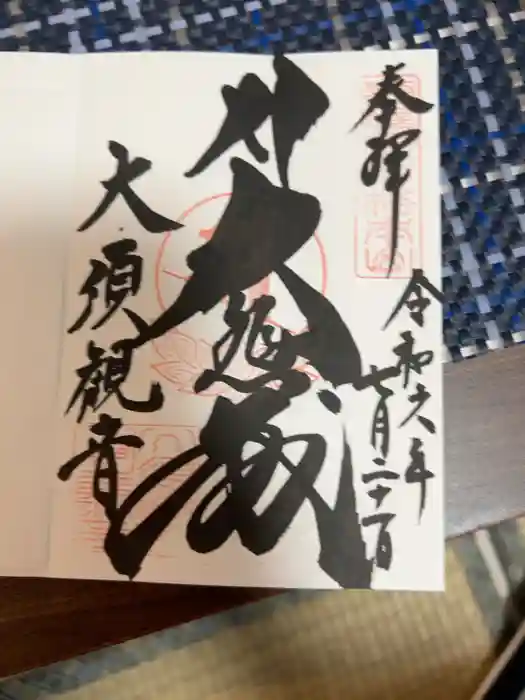 奉拝
令和六年
七月二十一日
大悲殿
大須観音